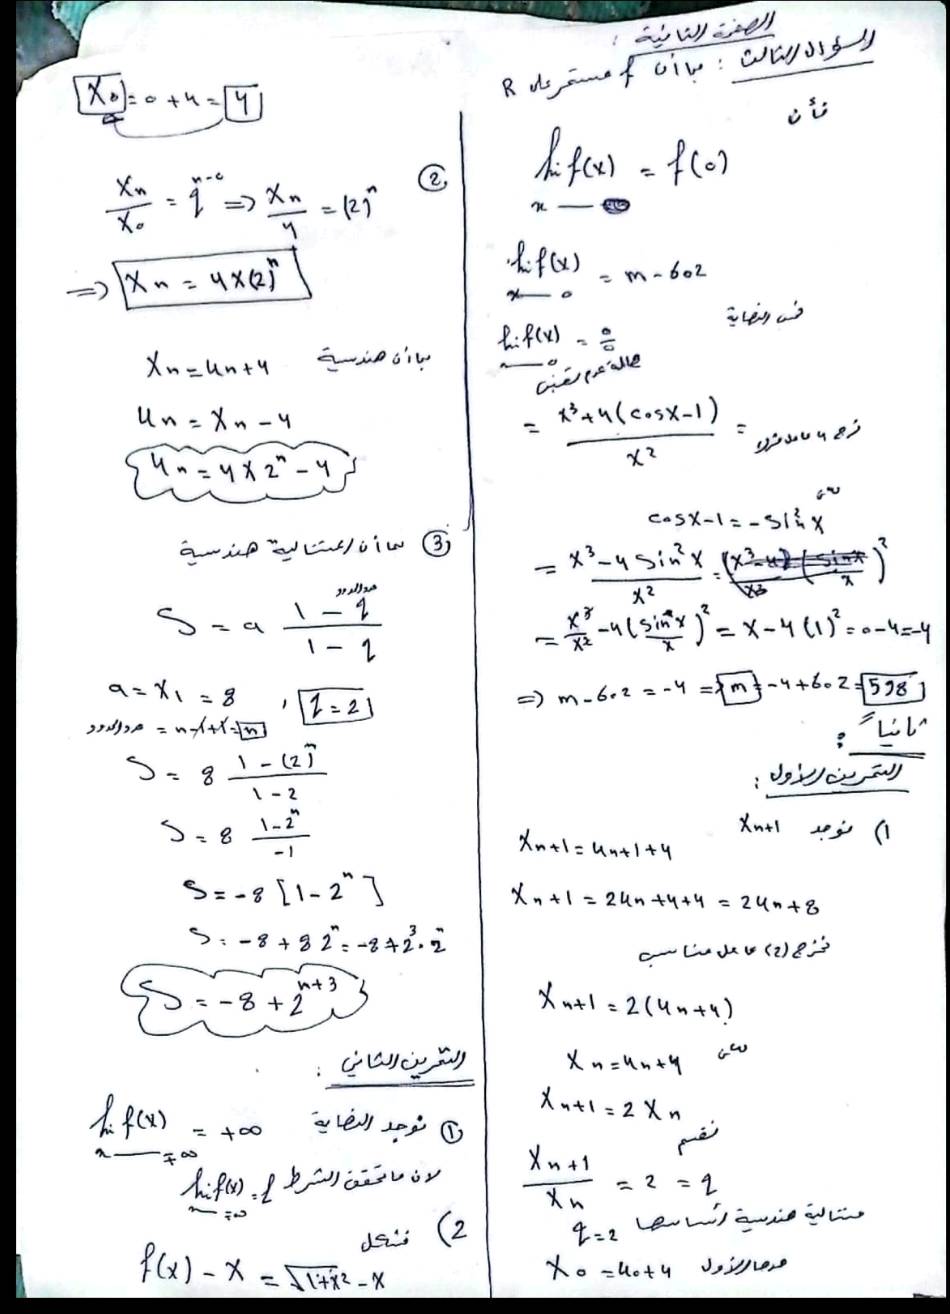 الصفحة الثانية :
السؤال الثالث : بما أن f مستمر على R
فأن
lim f(x) = f(0)
x →
lim f(x) = m - 602
x → 0
lim f(x) = 0/0
x → 0
حالة عدم تعيين
= x³ + 4(cosx-1) / x² =
cosx-1 = -sin²x
= x³ - 4 sin²x / x² =
= x³/x² - 4(sin x / x)² = x - 4(1)² = 0-4 = -4
=> m - 602 = -4 => m = -4 + 602 = 598
ثانياً :
التمرين الأول :
1) نوجد Xn+1
Xn+1 = Un+1 + 4
Xn+1 = 2Un + 4 + 4 = 2Un + 8
نخرج (2) عامل مناسب
Xn+1 = 2(Un+4)
Xn = Un + 4
Xn+1 = 2 Xn
نقسم
Xn+1 / Xn = 2 = q
متتالية هندسية أساسها q = 2
حدها الأول X0 = U0 + 4
X0 = 0 + 4 = 4
②
Xn / X0 = q^n-0 => Xn / 4 = (2)^n
=> Xn = 4 × (2)^n
بما أن هندسية Xn = Un + 4
Un = Xn - 4
Un = 4 × 2^n - 4
③ بما أن المتتالية هندسية
S = a 1 - q^عدد الحدود / 1 - q
a = X1 = 8 , q = 2
عدد الحدود = n-1+1 = n
S = 8 1 - (2)^n / 1 - 2
S = 8 1 - 2^n / -1
S = -8 [1 - 2^n]
S = -8 + 8 2^n = -8 + 2³ · 2^n
S = -8 + 2^n+3
التمرين الثاني :
① نوجد النهاية lim f(x) = +∞
x → +∞
لان ما تحقق الشرط lim f(x) = l
x → +∞
2) فنشكل
f(x) - x = √1+x² - x